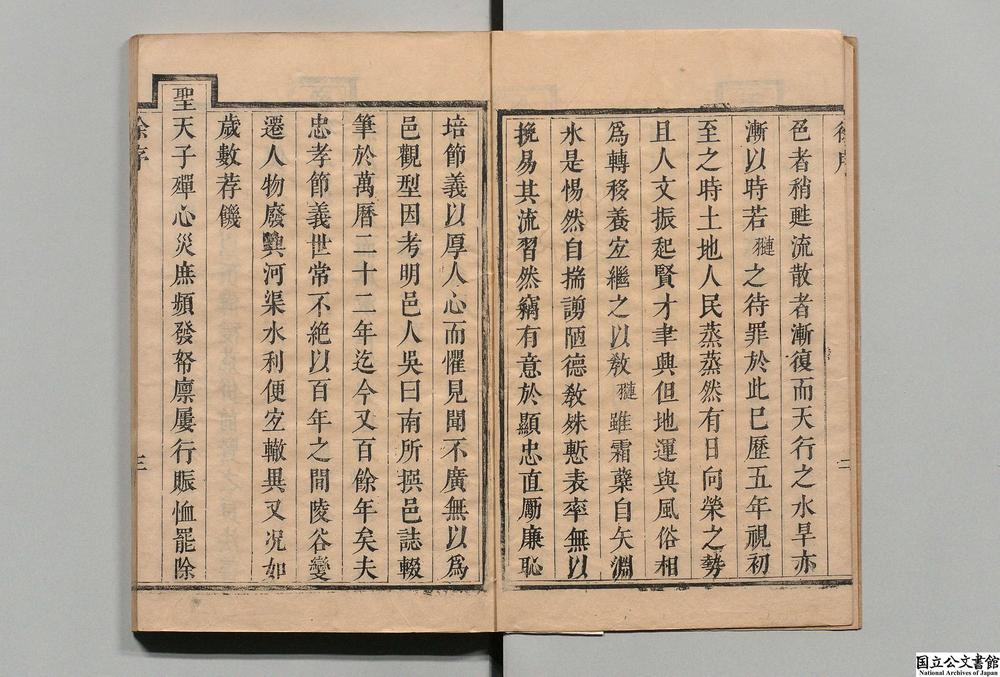 徐序
二
色者稍甦流散者漸復而天行之水旱亦
漸以時若之待罪於此已歷五年視初
至之時土地人民蒸蒸然有日向榮之勢
且人文振起賢才聿興但地運與風俗相
爲轉移養宐繼之以敎雖霜蘖自矢淵
氷是惕然自揣謭陋德敎殊慙表率無以
挽易其流習然竊有意於顯忠直勵廉恥
培節義以厚人心而懼見聞不廣無以爲
邑觀型因考明邑人吳曰南所撰邑誌輟
筆於萬曆二十二年迄今又百餘年矣夫
忠孝節義世常不絶以百年之間陵谷變
遷人物廢興河渠水利便宐轍異又况如
歲數荐饑
聖天子殫心災庶頻發帑廪屢行賑恤罷除
徐序
三
国立公文書館
National Archives of Japan